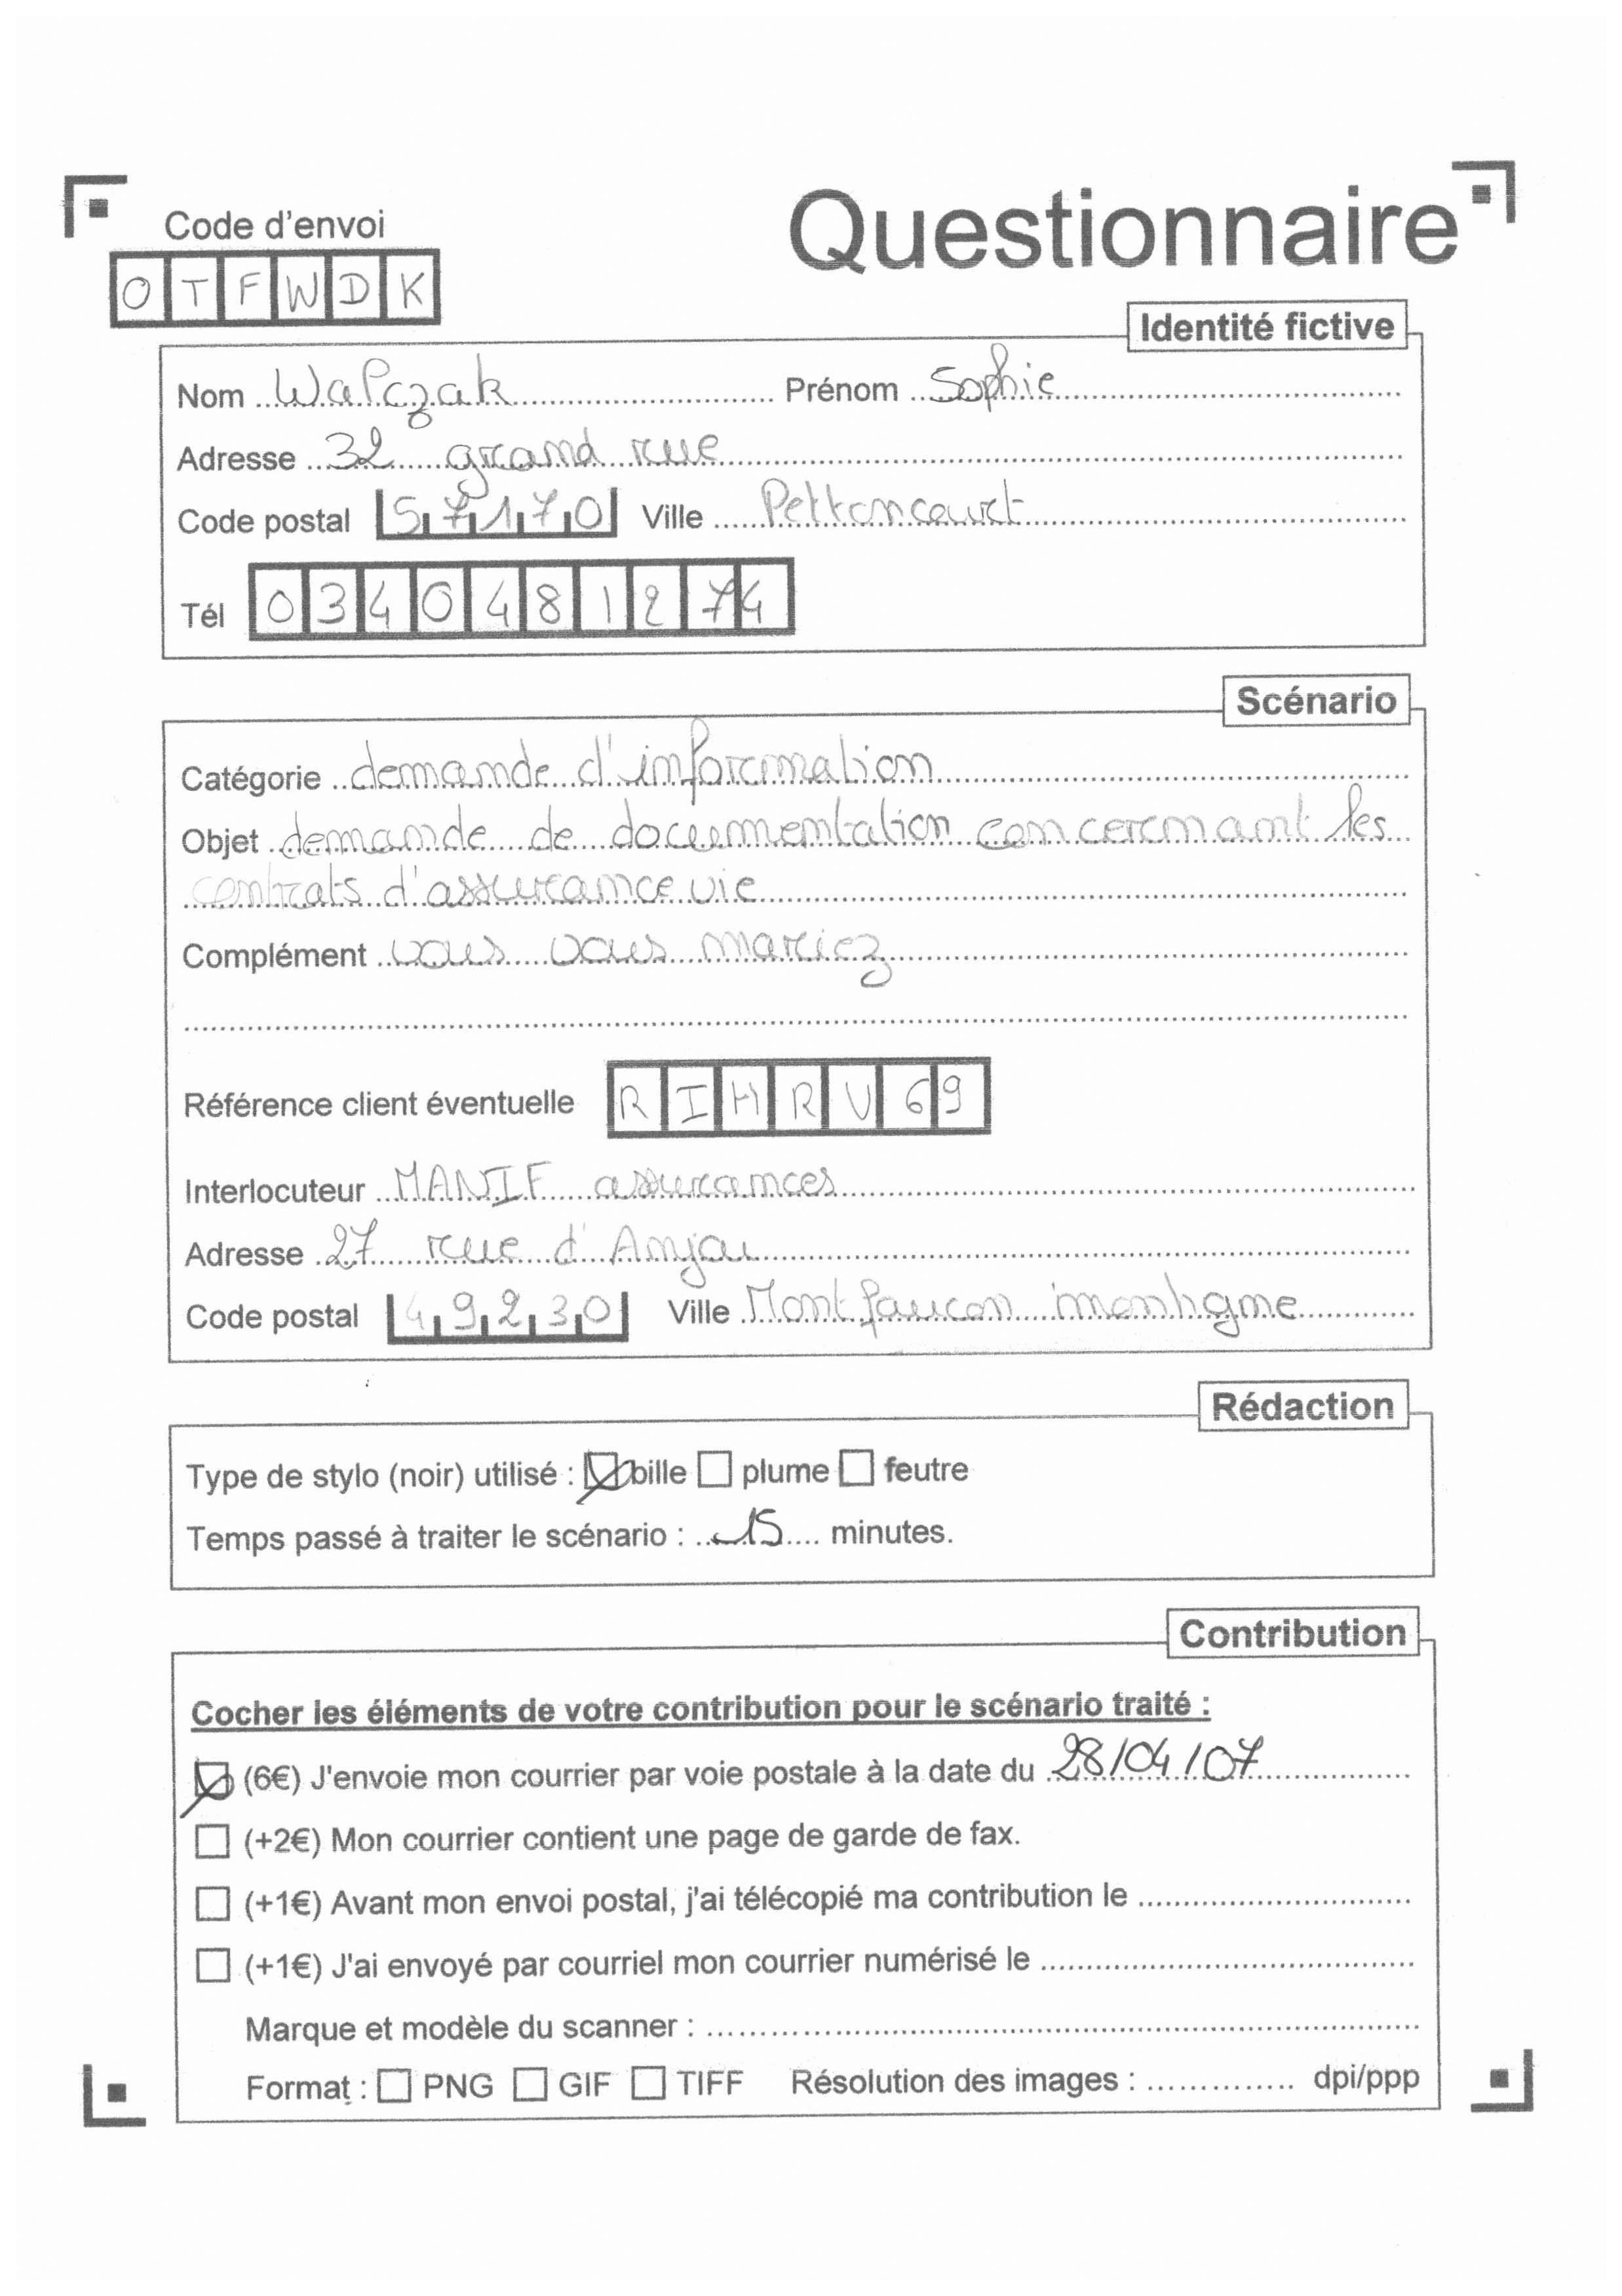 Code d'envoi
Questionnaire
OTFWDK
Identité fictive
Nom Walczak Prénom Sophie
Adresse 32 grand rue
Code postal 57170 Ville Pettoncourt
Tél 0340481274
Scénario
Catégorie demande d'information
Objet demande de documentation concernant les
contrats d'assurance vie
Complément vous vous mariez
Référence client éventuelle RIHRV69
Interlocuteur MANIF assurances
Adresse 27 rue d'Anjou
Code postal 49230 Ville Montfaucon montigne
Rédaction
Type de stylo (noir) utilisé : bille plume feutre
Temps passé à traiter le scénario : 15 minutes.
Contribution
Cocher les éléments de votre contribution pour le scénario traité :
(6€) J'envoie mon courrier par voie postale à la date du 28/04/07
(+2€) Mon courrier contient une page de garde de fax.
(+1€) Avant mon envoi postal, j'ai télécopié ma contribution le
(+1€) J'ai envoyé par courriel mon courrier numérisé le
Marque et modèle du scanner :
Format : PNG GIF TIFF Résolution des images : dpi/ppp